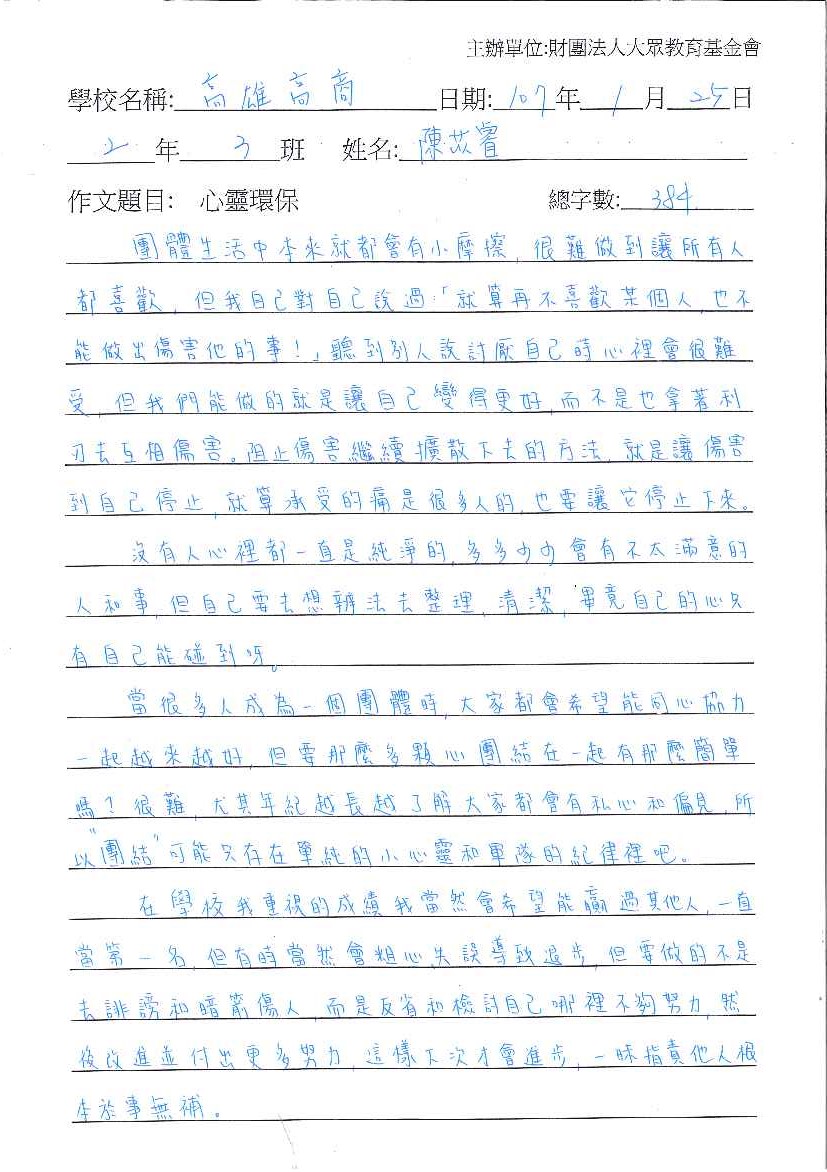 主辦單位:財團法人大眾教育基金會
學校名稱: 高雄高商 日期: 107年 1月 25日
2年 3班 姓名: 陳苡睿
作文題目: 心靈環保 總字數: 384
團體生活中本來就都會有小摩擦，很難做到讓所有人
都喜歡，但我自己對自己說過:「就算再不喜歡某個人，也不
能做出傷害他的事!」聽到別人說討厭自己時心裡會很難
受，但我們能做的就是讓自己變得更好，而不是也拿著利
刃去互相傷害。阻止傷害繼續擴散下去的方法，就是讓傷害
到自己停止，就算承受的痛是很多人的，也要讓它停止下來。
沒有人心裡都一直是純淨的，多多少少會有不太滿意的
人和事，但自己要去想辦法去整理，清潔，畢竟自己的心只
有自己能碰到呀。
當很多人成為一個團體時，大家都會希望能同心協力
一起越來越好，但要那麼多顆心團結在一起有那麼簡單
嗎?很難，尤其年紀越長越了解大家都會有私心和偏見，所
以"團結"可能只存在單純的小心靈和軍隊的紀律裡吧。
在學校我重視的成績我當然會希望能贏過其他人，一直
當第一名，但有時當然會粗心失誤導致退步，但要做的不是
去誹謗和暗箭傷人，而是反省和檢討自己哪裡不夠努力，然
後改進並付出更多努力，這樣下次才會進步，一昧指責他人根
本於事無補。